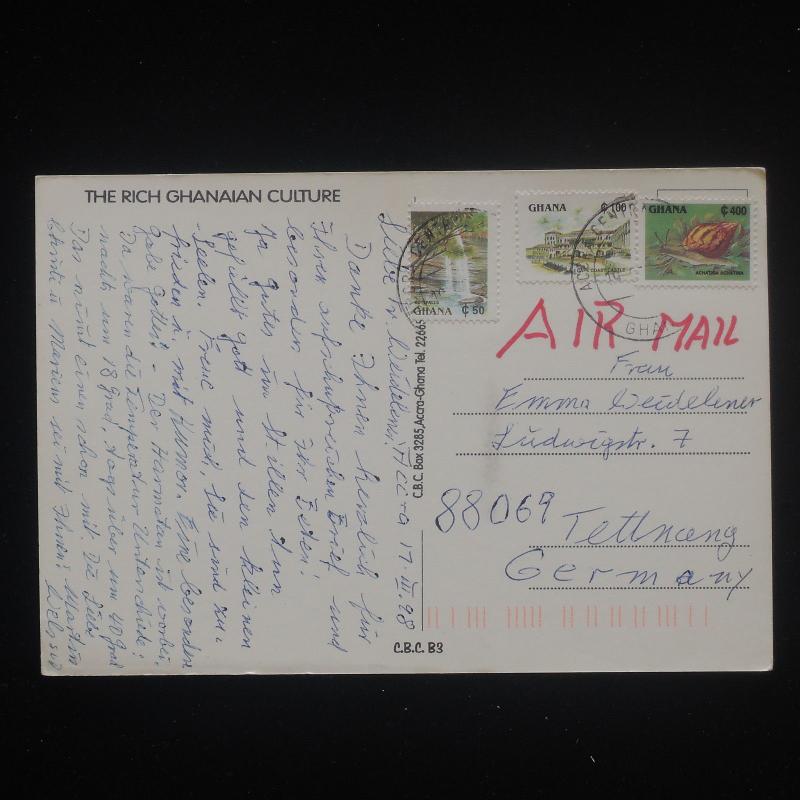 THE RICH GHANAIAN CULTURE
Liebe Fr. Weidelener, Accra 17. III. 98
Danke Ihnen herzlich für
Ihren Brief und
besonders für Ihr Beten!
Ja gutes im Stillen tun
gefällt Gott und den kleinen
Seelen. Freue mich, Sie sind zu-
frieden u. mit Humor. Eine besondere
Gabe Gottes! - Der Harmatan ist vorbei.
Da waren die Temperatur Unterschiede:
nachts um 18 Grad, tags über um 40 Grad
Das nimmt einen schon mit. Die Liebe
u Mariens sei mit Ihnen! Martin
GHANA ₵50
GHANA ₵100
CAPE COAST CASTLE
GHANA ₵400
ACHATINA ACHATINA
ACCRA CENTRAL
GHANA
AIR MAIL
Frau
Emma Weidelener
Ludwigstr. 7
88069 Tettnang
Germany
C.B.C. Box 3285, Accra-Ghana Tel. 22665
C.B.C. B3